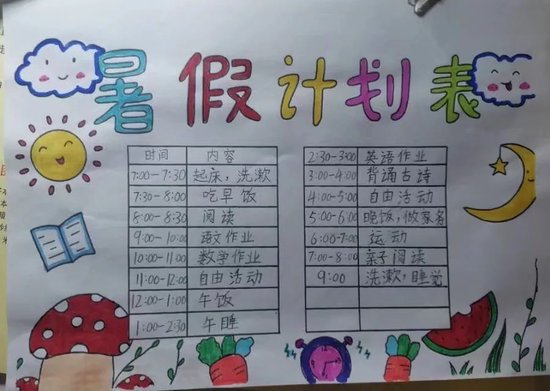 暑假计划表
时间 内容
7:00-7:30 起床，洗漱
7:30-8:00 吃早饭
8:00-8:30 阅读
9:00-10:00 语文作业
10:00-11:00 数学作业
11:00-12:00 自由活动
12:00-1:00 午饭
1:00-2:30 午睡
2:30-3:00 英语作业
3:00-4:00 背诵古诗
4:00-5:00 自由活动
5:00-6:00 晚饭，做家务
6:00-7:00 运动
7:00-8:00 亲子阅读
9:00 洗漱，睡觉